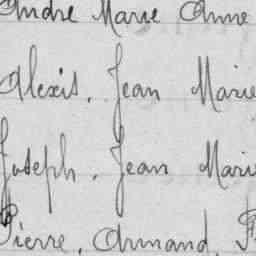 André Marie Anne
Alexis, Jean Marie
Joseph, Jean Marie
Pierre, Armand,